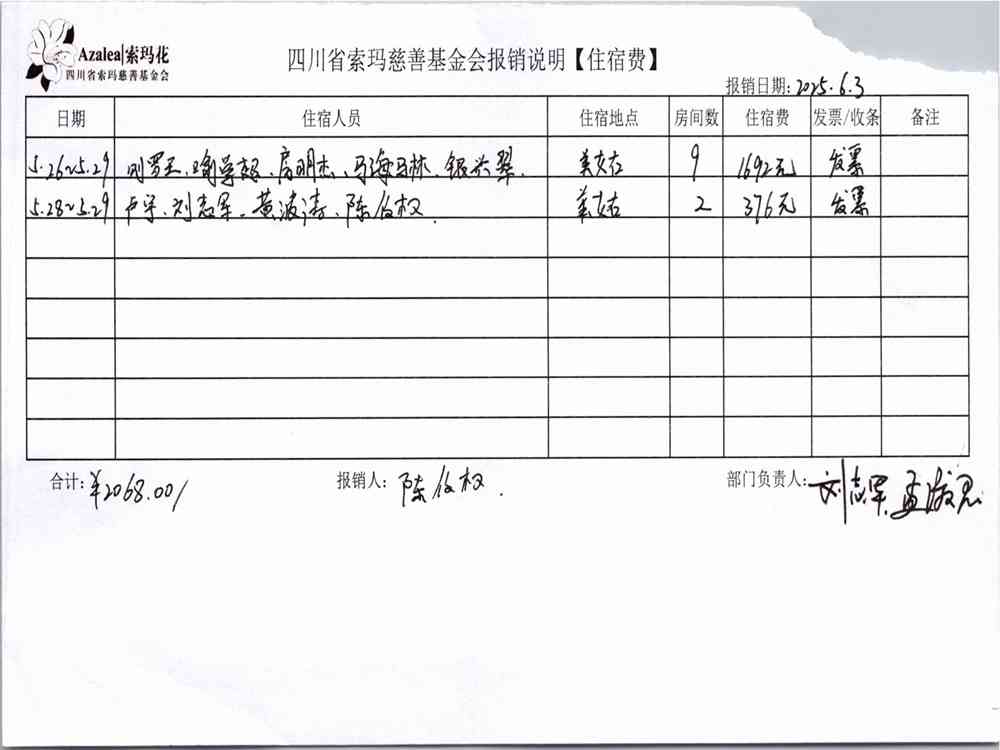 Azalea|索玛花
四川省索玛慈善基金会
四川省索玛慈善基金会报销说明【住宿费】
报销日期:2025.6.3
日期 住宿人员 住宿地点 房间数 住宿费 发票/收条 备注
5.26~5.29 房明杰、马海马林、银兴翠. 9 1692元 发票
5.28~5.29 卢宇、刘志军、黄波涛、陈俊权. 2 376元 发票
合计:¥2068.00/ 报销人: 陈俊权. 部门负责人: 刘志军.